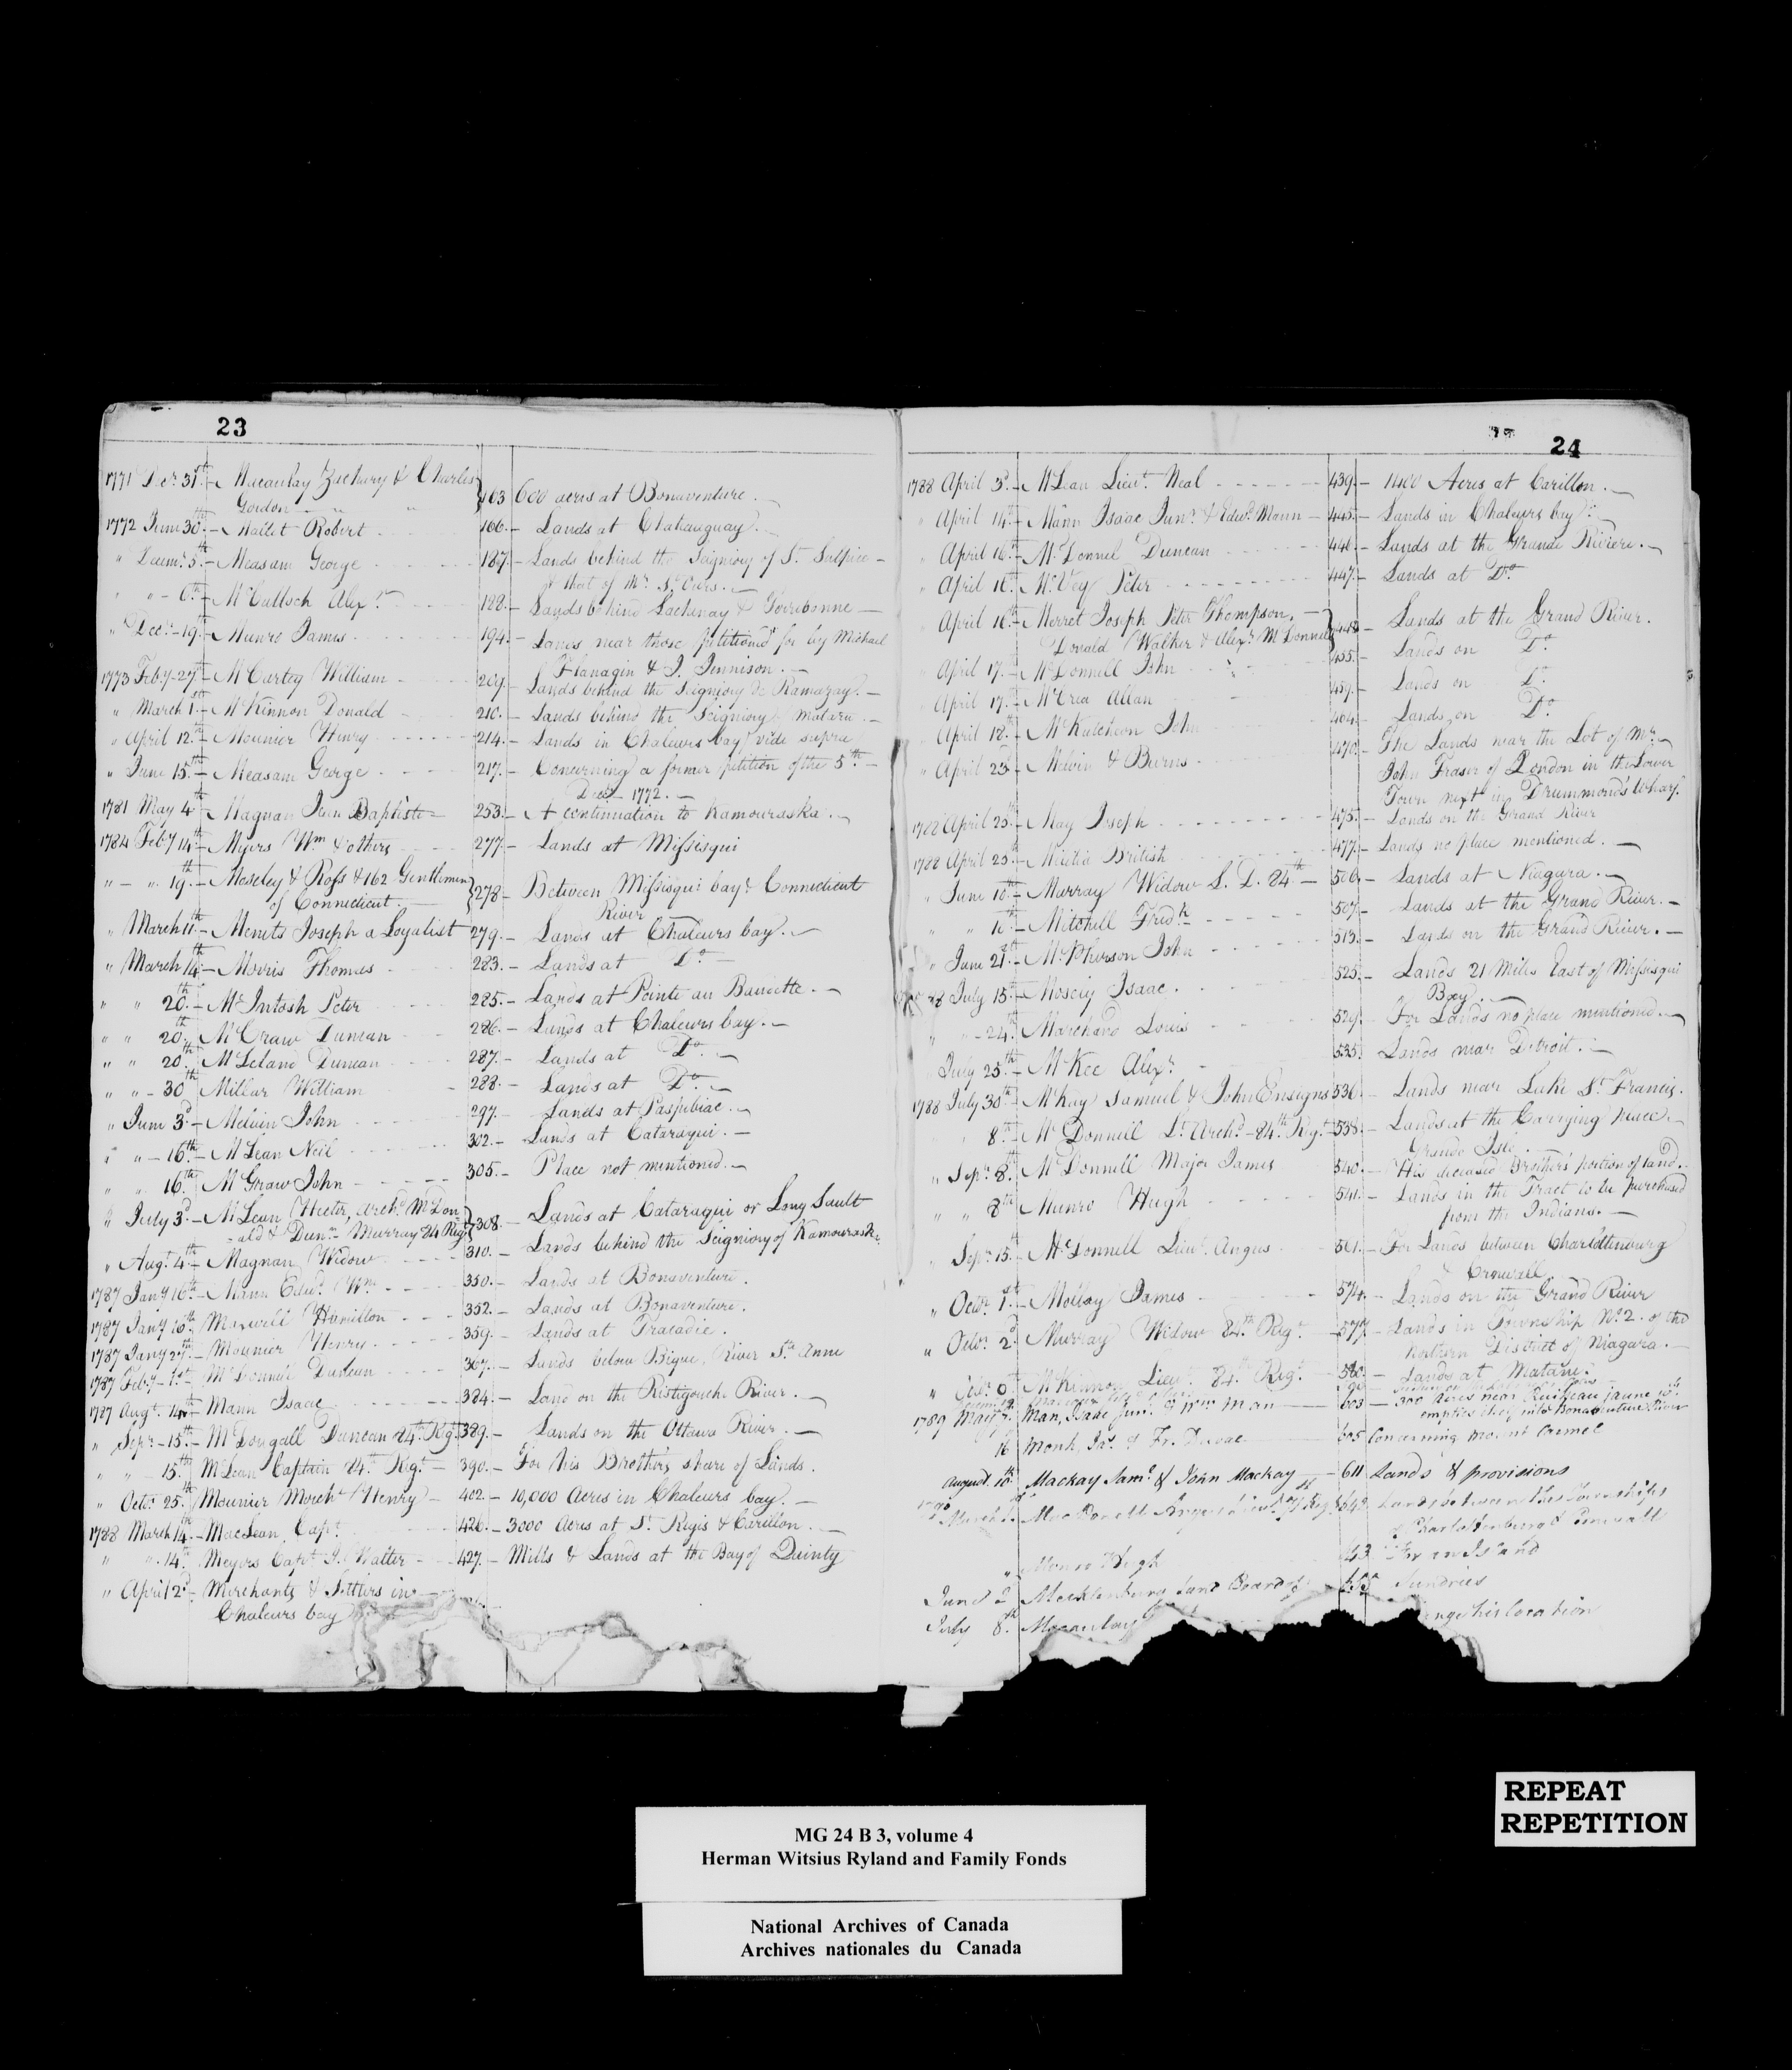 23
1771 Decr 31st - Macaulay Zachary & Charles 163 600 acres at Bonaventure. -
Gordon
1772 June 30th - Mailet Robert 166. - Lands at Chateauguay. -
" Decemr 5th - Measam George 187. - Lands behind the Seigniory of St Sulpice -
& that of Mr St Ours. -
" " - 6th - McCulloch Alexr 188. - Lands behind Lachenay & Terrebonne -
" Decr - 19th - Munro James 194. - Lands near those petitioned for by Michael
Flanagin & J. Jennison. -
1773 Feby - 27th - McCarty William 209. - Lands behind the Seigniory de Ramazay. -
" March 1st - McKinnon Donald 210. - Lands behind the Seigniory Matane. -
" April 12th - Mounier Henry 214. - Lands in Chaleurs bay vide supra
" June 15th - Measam George 217. - Concerning a former petition of the 5th -
Decr - 1772. -
1781 May 4th - Magnan Jean Baptiste - 253. - A continuation to Kamouraska. -
1784 Feby 14th - Myers Wm & others 277. - Lands at Missisqui
" - " 19th - Moseley & Ross & 162 Gentlemen 278 - Between Missisqui bay & Connecticut
of Connecticut. - River
" March 11th - Menuts Joseph a Loyalist 279. - Lands at Chaleurs bay. -
" March 14th - Morris Thomas 283. - Lands at Do -
" " 20th - McIntosh Peter 285. - Lands at Pointe au Baudette. -
" " 20th McGraw Duncan 286. - Lands at Chaleurs bay. -
" " 20th McLeland Duncan 287. - Lands at Do. -
" " - 30th Millar William 288. - Lands at Do. -
" June 3d - Melvin John 297. - Lands at Paspibiac. -
" " - 16th - McLean Neil 302. - Lands at Cataraqui. -
" " 16th McGraw John 305. - Place not mentioned. -
" July 3d - McLean Hector, Archd McDon- 308. - Lands at Cataraqui or Long Sault
-ald & Dunn Murray 84 Regt
" Augt 4th - Magnan Widow 310. - Lands behind the Seigniory of Kamouraska.
1787 Jany 16th - Mann Edwd Wm 350. - Lands at Bonaventure.
1787 Jany 16th Maxwell Hamilton 352. - Lands at Bonaventure.
1787 Jany 27th - Mounier Henry 359. - Lands at Tracadie.
1787 Feby - 1st - McDonnel Duncan 367. - Lands below Bique, River Ste Anne
1787 Augt 14th - Mann Isaac 384. - Land on the Ristigouche River. -
" Sepr - 15th - McDougall Duncan 84th Regt 389. - Lands on the Ottawa River. -
" " - 15th McLean Captain 84th Regt - 390. - For his Brother's share of Lands.
" Octr 25th Mounier Mercht Henry - 402. - 10,000 Acres in Chaleurs bay. -
1788 March 14 - MacLean, Capt 426. - 3000 Acres at St Regis & Carillon. -
" " 14th Meyers Capt J. Walter - 427. - Mills & Lands at the Bay of Quinty
" April 2d - Merchants & Settlers in
Chaleurs bay
24
1788 April 3d - McLean Lieut Neal 439. - 1400 Acres at Carillon. -
" April 14th - Mann Isaac Junr & Edwd Mann - 445. - Lands in Chaleurs bay.
" April 16th - McDonnel Duncan 446. - Lands at the Grande Riviere. -
" April 16th - McVey Peter 447. - Lands at Do
" April 16th - Merret Joseph Peter Thompson, - 448 - Lands at the Grand River.
Donald Walker & Alexr McDonnell
" April 17. - McDonnell John 455. - Lands on Do.
" April 17. - McCrea Allan 459. - Lands on Do.
" April 18. - McKutcheon John 464. - Lands on Do.
" April 23d - Melvin & Burns 470. - The Lands near the Lot of Mr -
John Fraser of London in the Lower
Town next in Drummond's Wharf.
1788 April 25th - May Joseph 475. - Lands on the Grand River
1788 April 25th - Militia British 477. - Lands no place mentioned. -
" June 10th - Murray Widow S. L. 84th - 506. - Lands at Niagara. -
" " 16th - Mitchell Fredk 507. - Lands at the Grand River. -
" June 21st - McPherson John 513. - Lands on the Grand River. -
88 July 15th - Moseley Isaac. 525. - Lands 21 Miles East of Missisqui
Bay. -
" - 24th Marchand Louis 529. - For Lands no place mentioned. -
July 25th - McKee Alexr 535. Lands near Detroit. -
1788 July 30th - McKay Samuel & John Ensigns 536. - Lands near Lake St Francis.
" 8th - McDonnell Lt Archd - 84th Regt - 538. - Lands at the Carrying place -
Grande Isle.
" Sepr 8th McDonnell Major James 540. - His deceased Brother's portion of Land. -
" " 8th Munro Hugh 541. - Lands in the Tract to be purchased
from the Indians. -
" Sepr 15th - McDonnell Lieut Angus 561. - For Lands between Charlottenburg
& Cornwall.
" Octr 1st - Molloy James 574. - Lands on the Grand River
" Octr 2d Murray Widow 84th Regt 577. - Lands in Township No 2. of the
Northern District of Niagara. -
" Octr 6th McKinnon Lieut 84th Regt - 580. - Lands at Matane.
1789 May 7. Man, Isaac junr & Wm Man - 603 - 300 Acres near Ruisseau jaune wch
empties itself into Bonaventure River
16 Monk, Js. & Fr. Duvac 605 Concerning mount Carmel
August 10th Mackay Saml & John Mackay 611 Lands & provisions
March Mac Donell Angus Lieut Regt 642 Lands between the Townships
of Charlottenburg & Cornwall
" Monro Hugh 643 For an Island
June 2 Mecklenburg Land Board of Sundries
July 8th Macaulay his location
REPEAT
REPETITION
MG 24 B 3, volume 4
Herman Witsius Ryland and Family Fonds
National Archives of Canada
Archives nationales du Canada